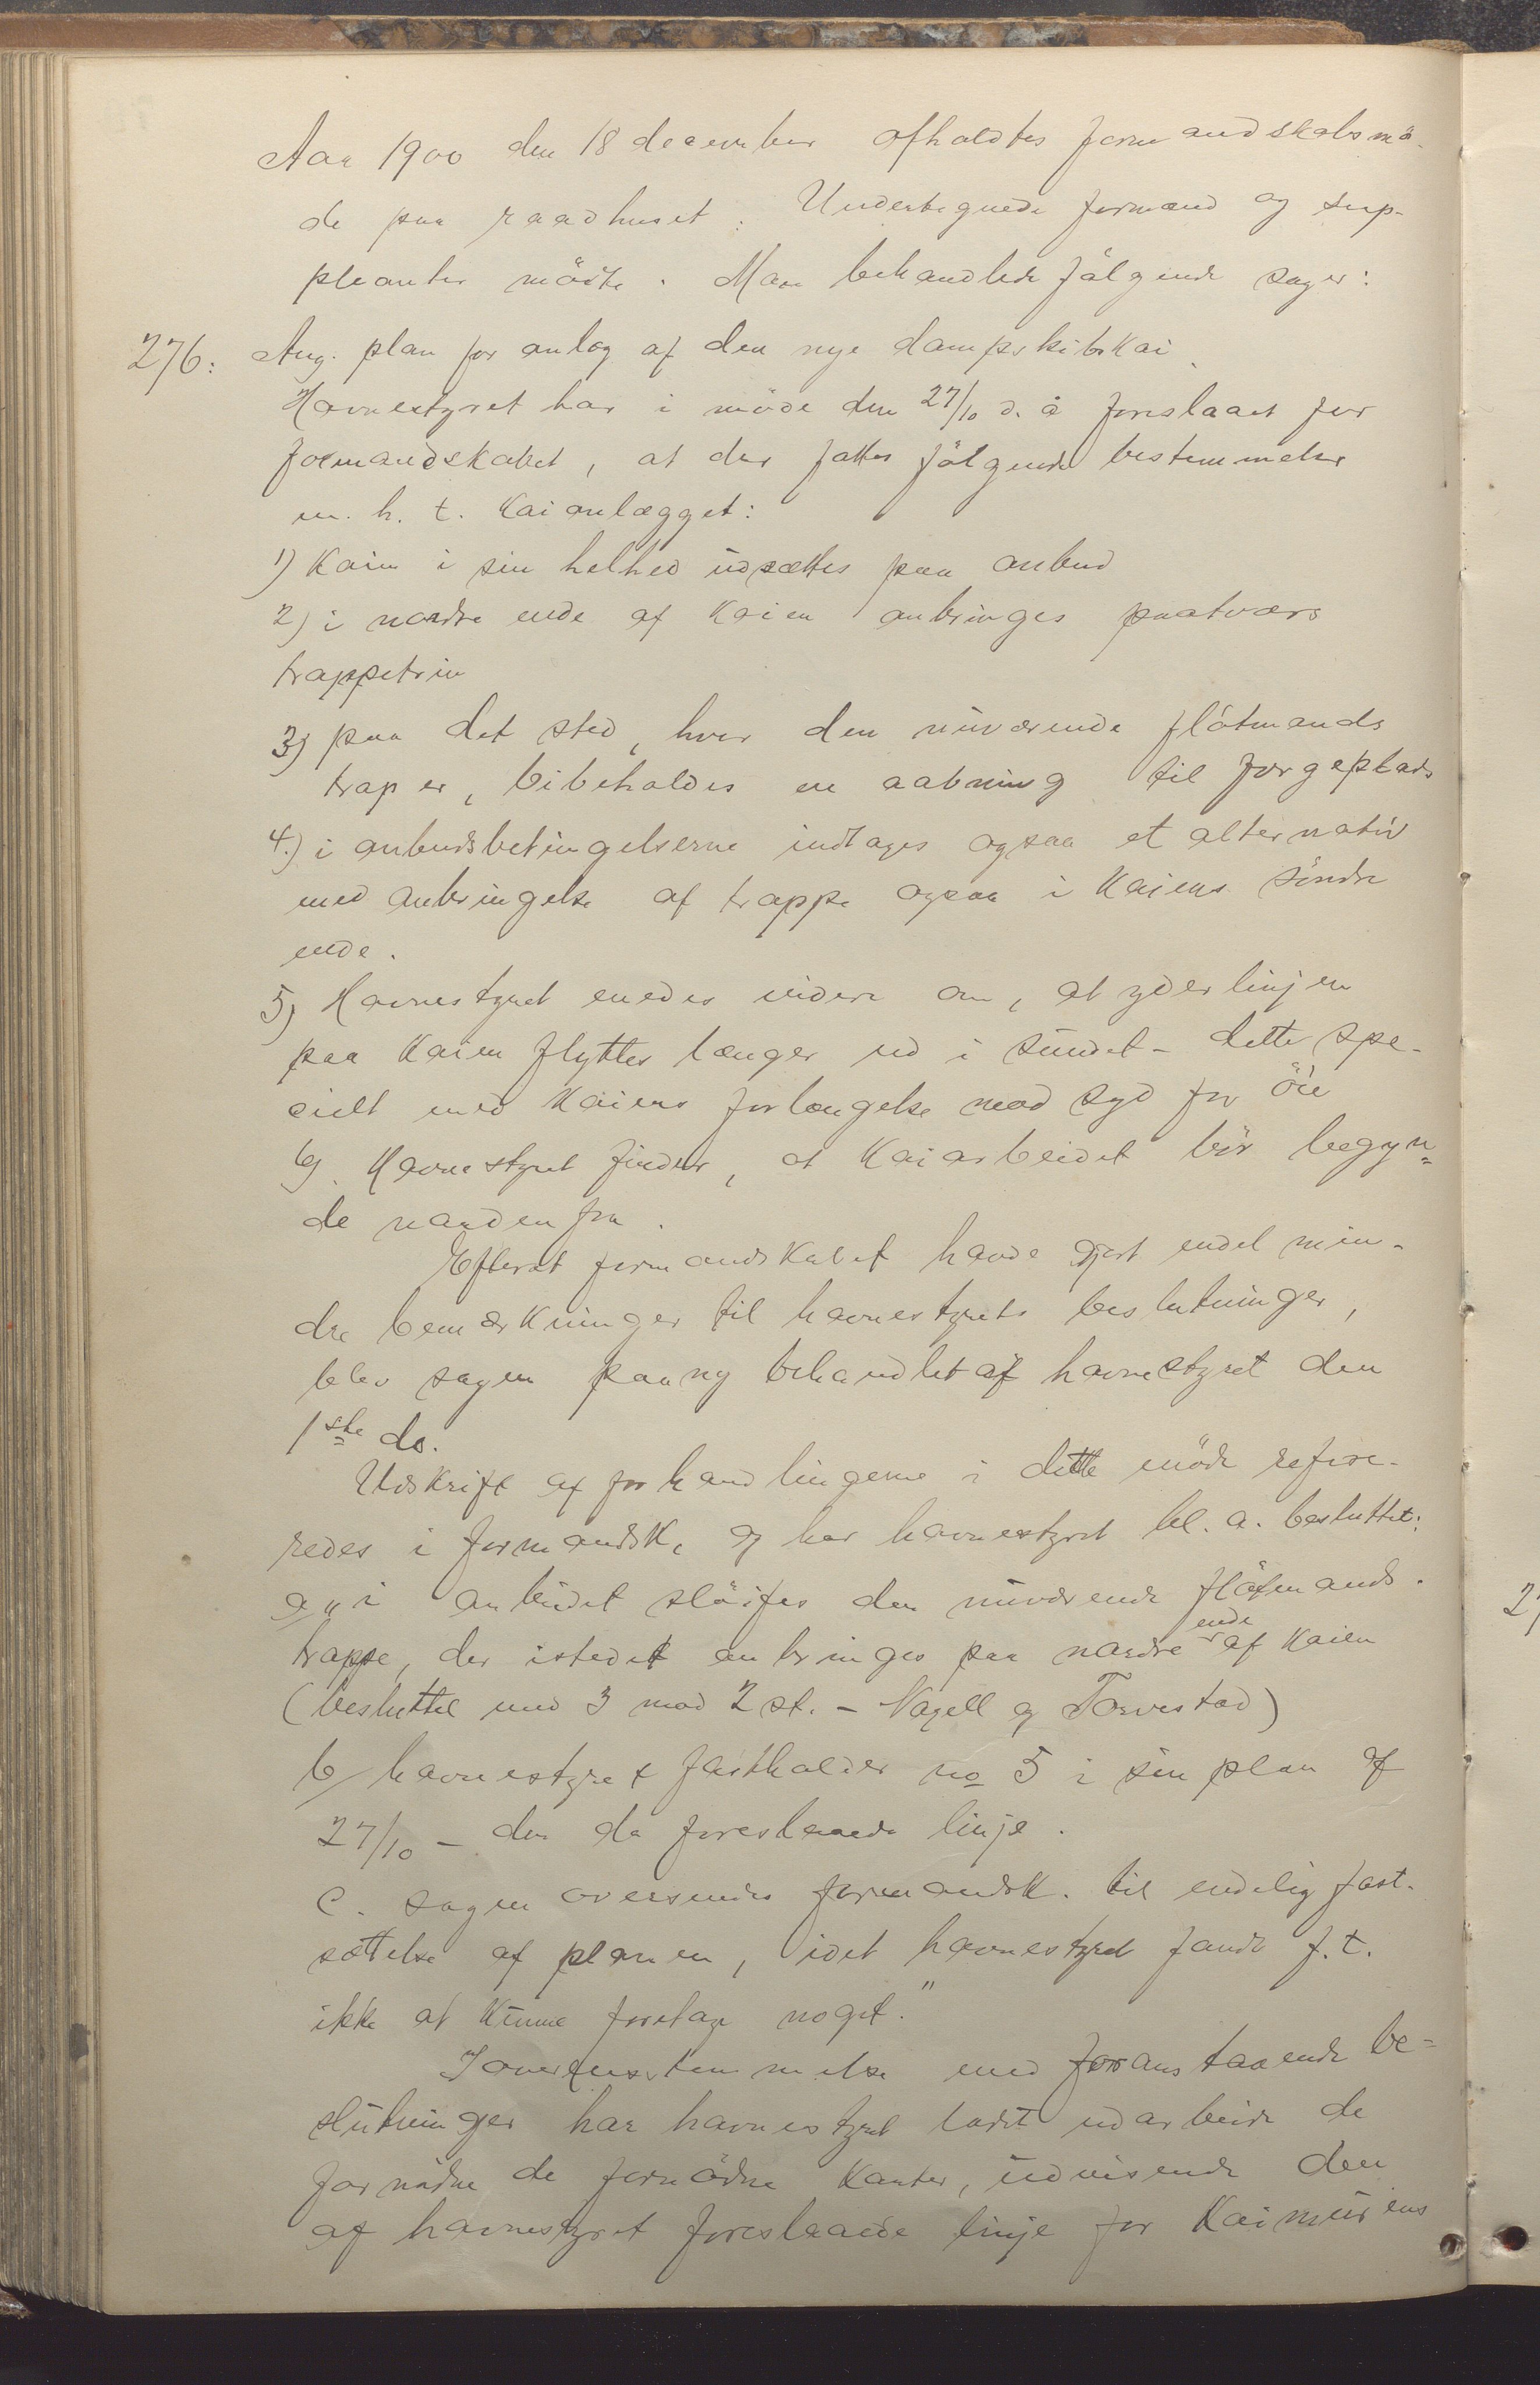 Aar 1900 den 18 december afholdtes formandskabsmö-
de paa raadhuset. Undertegnede formænd og sup-
pleanter mödte. Man behandlede fölgende sager:
276: Ang. plan for anlæg af den nye dampskibskai.
Havnestyret har i möde den 27/10 d. å foreslaaet for
formandskabet, at der fattes fölgende bestemmelser
m. h. t. Kaianlægget:
1) Kaien i sin helhed udsættes paa anbud
2) i nordre ende af Kaien anbringes paatværs
trappetrin
3) paa det sted, hvor den nuværende flötmands
trap er, bibeholdes en aabning til færgeplads
4.) i anbudsbetingelserne indtages ogsaa et alternativ
med anbringelse af trappe ogsaa i Kaiens söndre
ende.
5) Havnestyret enedes videre om, at yderlinjen
paa Kaien flyttes længer ud i sundet - dette spe-
cielt med Kaiens forlængelse mod syd for öie
6) Havnestyret finder, at Kaiarbeidet bör begyn=
de nordenfra.
Efterat formandskabet havde gjort endel min-
dre bemærkninger til havnestyrets beslutninger,
blev sagen paany behandlet af havnestyret den
1ste ds.
Udskrift af forhandlingerne i dette möde refere-
redes i formandsk, og har havnestyret bl. a. besluttet:
a „i anbudet slöifes den nuværende flötmands-
trappe, der istedet anbringes paa nordre ende af Kaien
(besluttet med 3 mod 2 st. - Nagell og Torvestad)
b/ havnestyret fastholder no 5 i sin plan af
27/10 - den da foreslaaede linje.
c. sagen oversendes formandsk. til endelig fast-
sættelse af planen, idet havnestyret fandt f. t.
ikke at kunne foretage noget."
I overensstemmelse med foranstaaende be=
slutninger har havnestyret ladet udarbeide de
fornödne de fornödne Karter, udvisende den
af havnestyret foreslaaede linje for Kaimurens